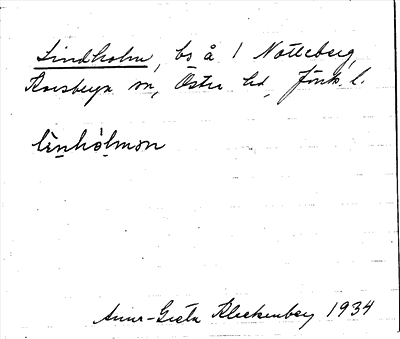 Lindholm, bs å 1 Notteberg,
Korsberga sn, Östra hd, Jönk. l.
lìnhòlmən
Anna-Greta Bleckenberg 1934